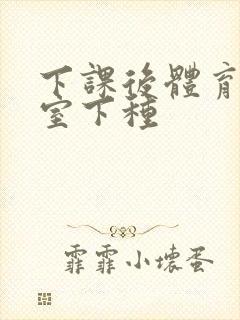 下課後體育
室下種
霏霏小壞蛋